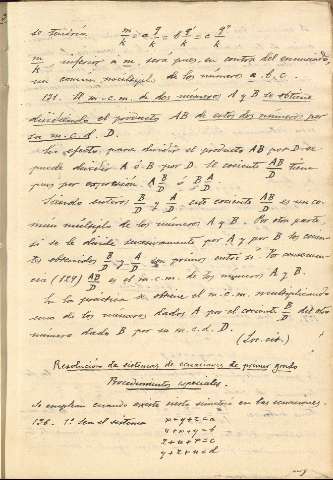 se tendría m/k = a q/k = b q'/k = c q''/k
m/k inferior a m, será pues, en contra del enunciado,
un común multiplo de los números a. b. c.
121. El m.c.m. de dos números A y B se obtiene
dividiendo el producto AB de estos dos números por
su m.c.d. D.
En efecto, para dividir el producto AB por D se
puede dividir A ó B por D. El cociente AB/D tiene
pues por expresión A B/D ó B A/D
Siendo enteros B/D y A/D este cociente AB/D es un co-
mún multiplo de los números A y B. Por otra parte
si se le divide sucesivamente por A y por B los cocien-
tes obtenidos B/D y A/D son primos entre si Por consecuen-
cia (124) AB/D es el m.c.m. de los números A y B.
En la practica se obtiene el m.c.m. multiplicando
uno de los números dados A por el cociente B/D del otro
número dado B por su m.c.d. D.
(Loc. cit.)
Resolución de sistemas de ecuaciones de primer grado
Procedimientos especiales.
Se emplean cuando existe cierta simetría en las ecuaciones.
126. 1º Sea el sistema x+y+z=a
u+x+y=b
z+u+x=c
y+z+u=d